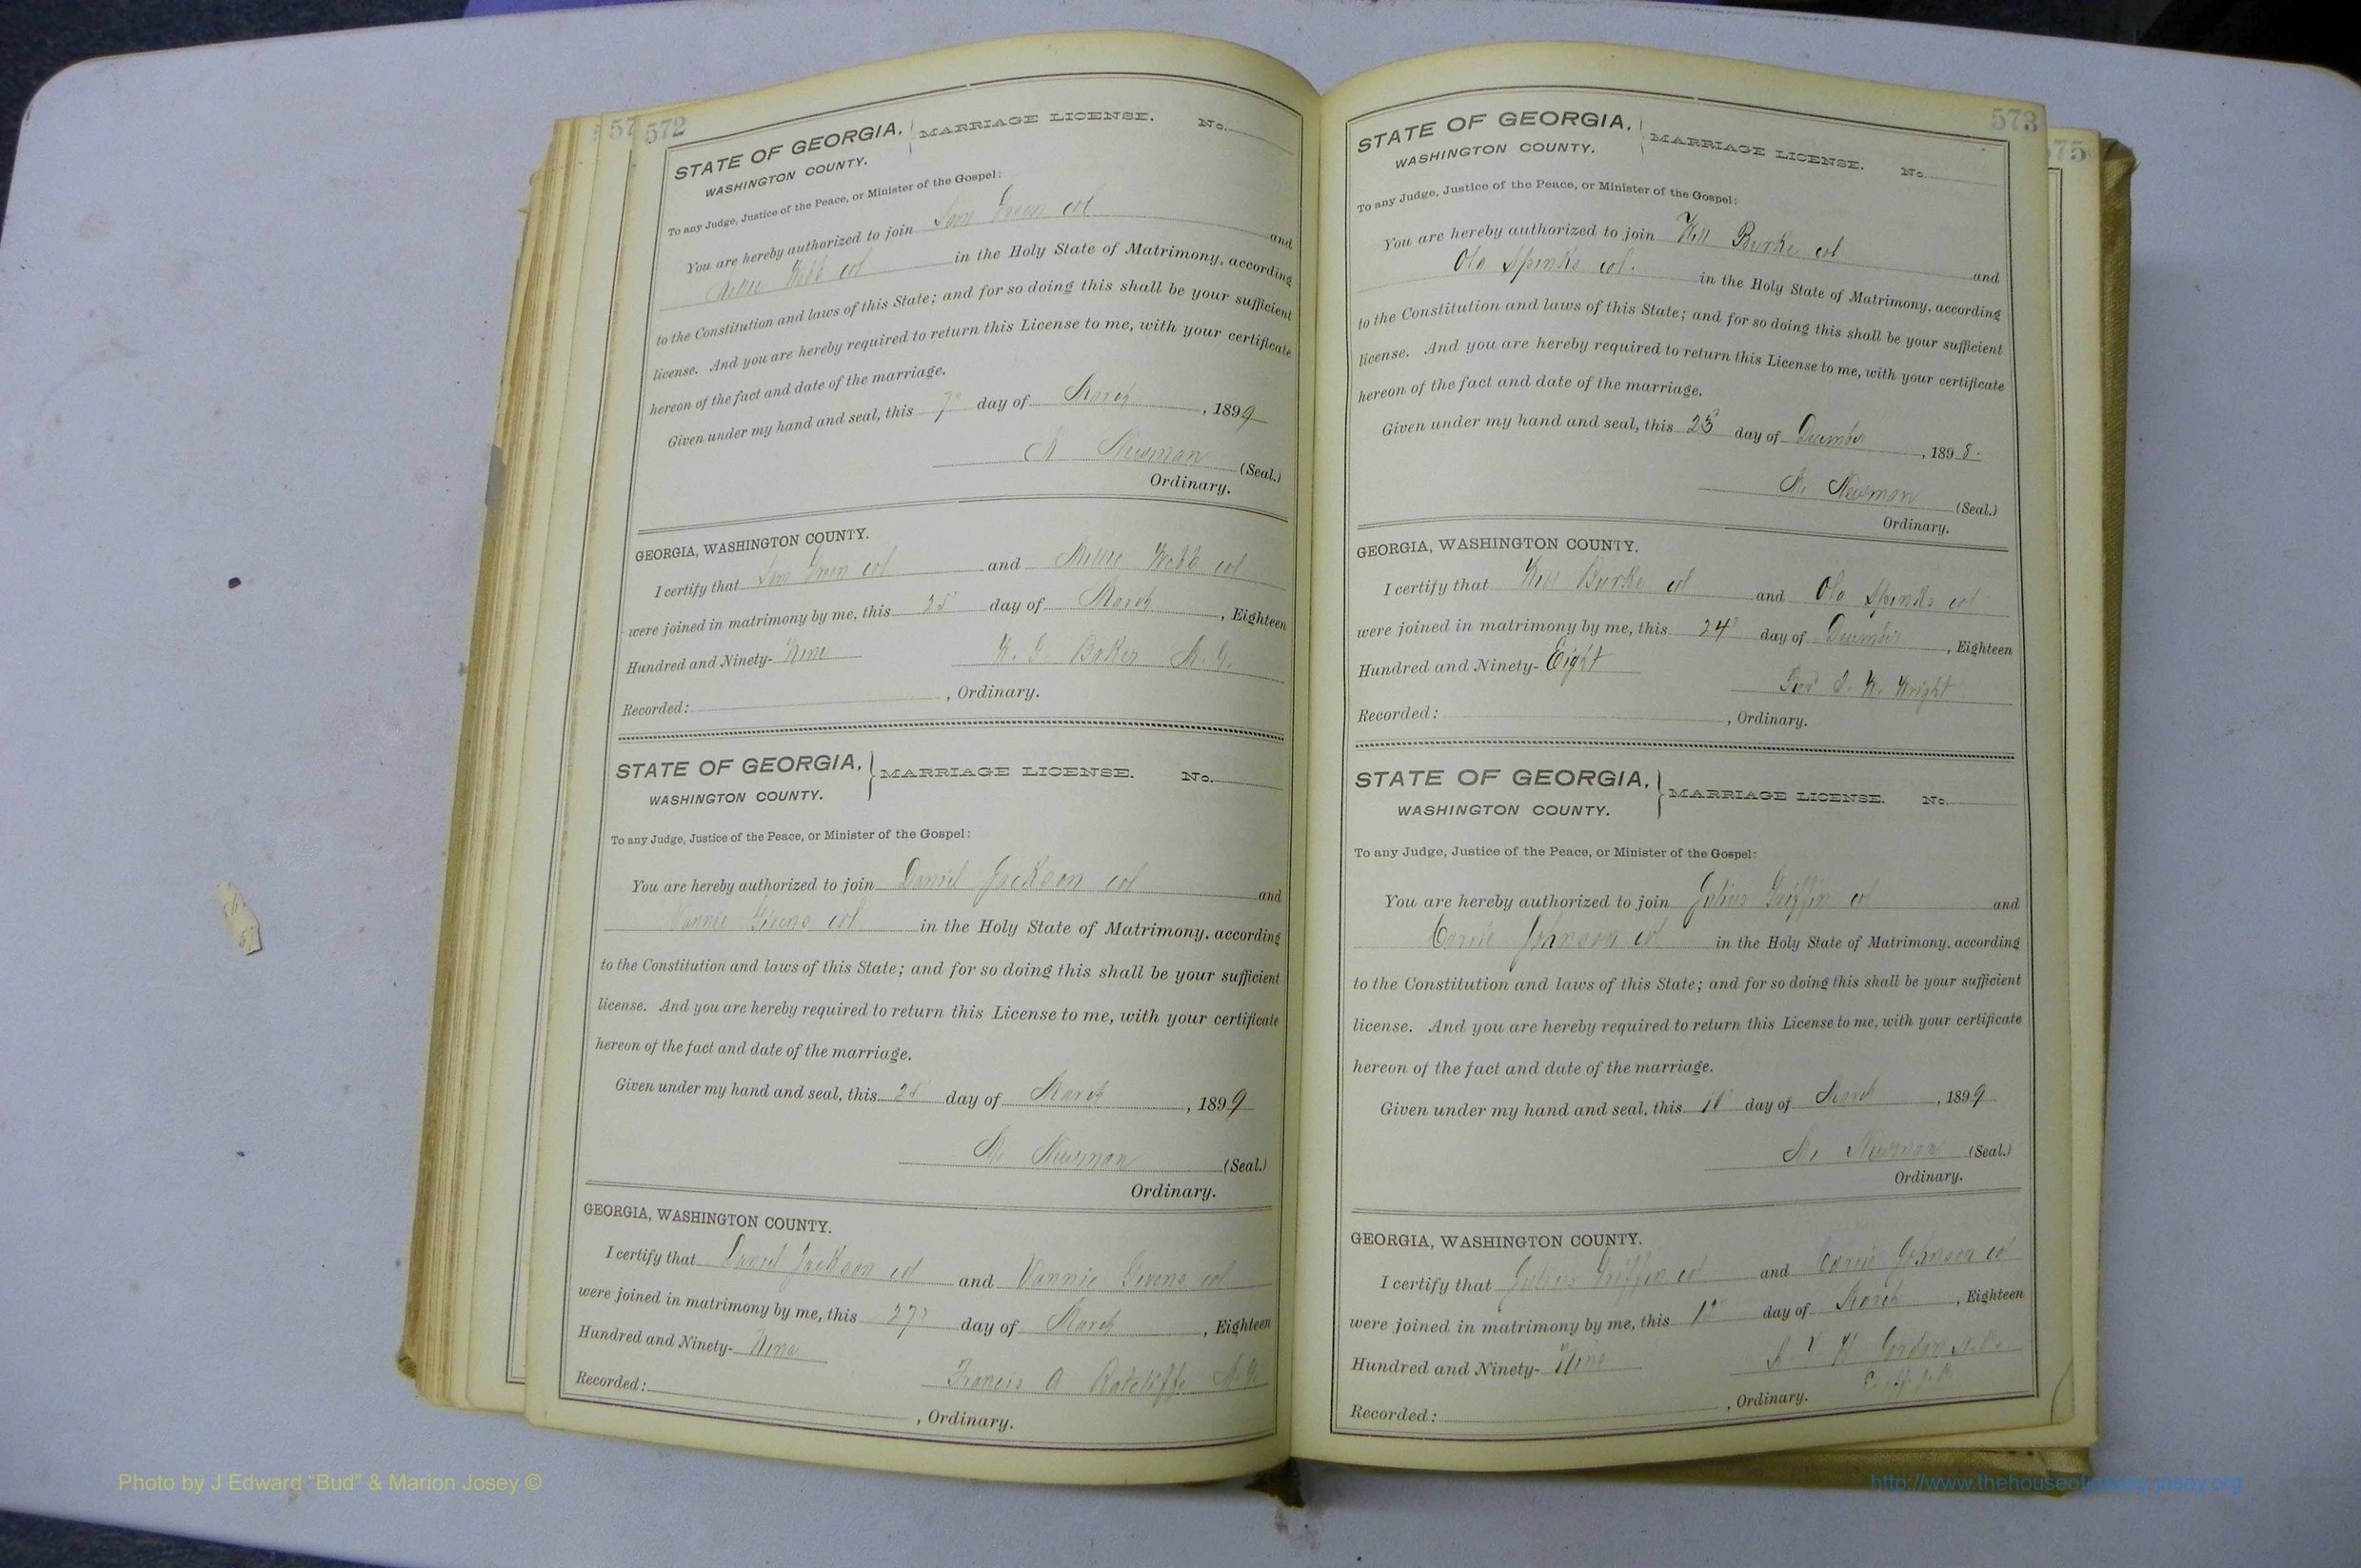 57
572
STATE OF GEORGIA,
WASHINGTON COUNTY.
MARRIAGE LICENSE. No.
To any Judge, Justice of the Peace, or Minister of the Gospel:
You are hereby authorized to join Sam Green col and
Webb col in the Holy State of Matrimony, according
to the Constitution and laws of this State; and for so doing this shall be your sufficient
license. And you are hereby required to return this License to me, with your certificate
hereon of the fact and date of the marriage.
Given under my hand and seal, this day of March, 1899
M Newman (Seal.)
Ordinary.
GEORGIA, WASHINGTON COUNTY.
I certify that Sam Green col and Webb col
were joined in matrimony by me, this 25 day of March, Eighteen
Hundred and Ninety-Nine Baker M.G.
Recorded: , Ordinary.
STATE OF GEORGIA,
WASHINGTON COUNTY.
MARRIAGE LICENSE. No.
To any Judge, Justice of the Peace, or Minister of the Gospel:
You are hereby authorized to join Daniel Jackson col and
Vannie Givens col in the Holy State of Matrimony, according
to the Constitution and laws of this State; and for so doing this shall be your sufficient
license. And you are hereby required to return this License to me, with your certificate
hereon of the fact and date of the marriage.
Given under my hand and seal, this 25 day of March, 1899
M. Newman (Seal.)
Ordinary.
GEORGIA, WASHINGTON COUNTY.
I certify that Daniel Jackson col and Vannie Givens col
were joined in matrimony by me, this 27 day of March, Eighteen
Hundred and Ninety-Nine Francis A Ratcliffe M.G.
Recorded: , Ordinary.
573
75
STATE OF GEORGIA,
WASHINGTON COUNTY.
MARRIAGE LICENSE. No.
To any Judge, Justice of the Peace, or Minister of the Gospel:
You are hereby authorized to join Will Burke col and
Ola Spinks col. in the Holy State of Matrimony, according
to the Constitution and laws of this State; and for so doing this shall be your sufficient
license. And you are hereby required to return this License to me, with your certificate
hereon of the fact and date of the marriage.
Given under my hand and seal, this 23 day of December, 1898.
M. Newman (Seal.)
Ordinary.
GEORGIA, WASHINGTON COUNTY.
I certify that Will Burke col and Ola Spinks col
were joined in matrimony by me, this 24 day of December, Eighteen
Hundred and Ninety-Eight Wright
Recorded: , Ordinary.
STATE OF GEORGIA,
WASHINGTON COUNTY.
MARRIAGE LICENSE. No.
To any Judge, Justice of the Peace, or Minister of the Gospel:
You are hereby authorized to join Julius Griffin col and
Carrie Johnson col in the Holy State of Matrimony, according
to the Constitution and laws of this State; and for so doing this shall be your sufficient
license. And you are hereby required to return this License to me, with your certificate
hereon of the fact and date of the marriage.
Given under my hand and seal, this day of March, 1899.
M. Newman (Seal.)
Ordinary.
GEORGIA, WASHINGTON COUNTY.
I certify that Julius Griffin col and Carrie Johnson col
were joined in matrimony by me, this 12 day of March, Eighteen
Hundred and Ninety-Nine
Recorded: , Ordinary.
Photo by J Edward "Bud" & Marion Josey ©